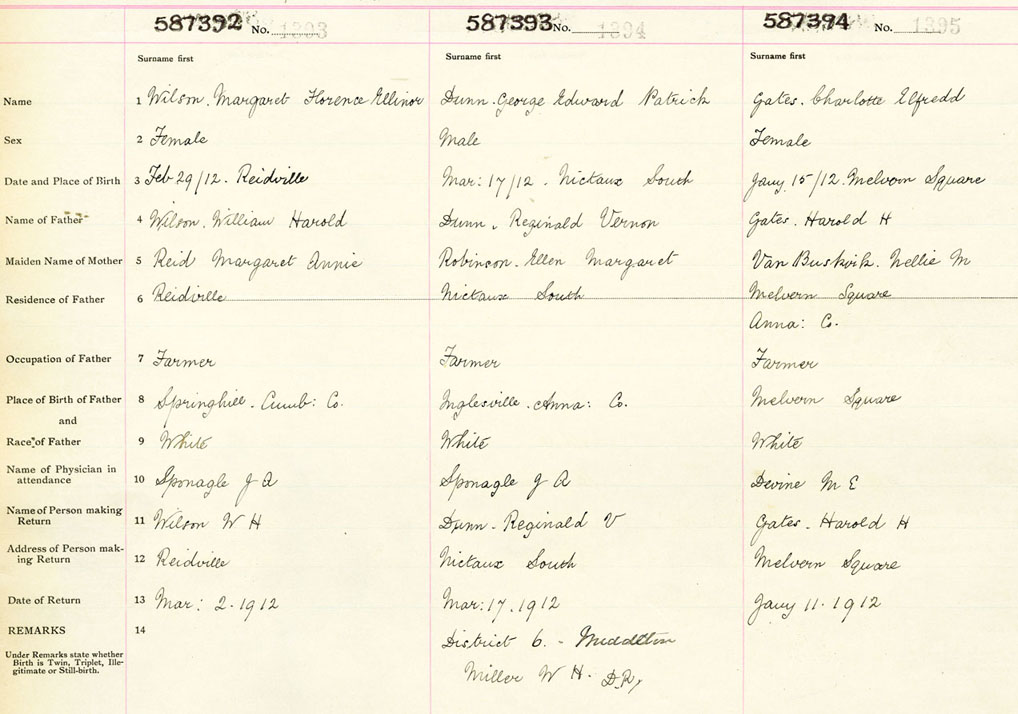 587392 No. 1393 587393 No. 1394 587394 No. 1395
Surname first Surname first Surname first
Name 1 Wilson. Margaret Florence Ellinor Dunn. George Edward Patrick Gates. Charlotte Elfredd
Sex 2 Female Male Female
Date and Place of Birth 3 Feb 29/12. Reidville Mar: 17/12. Nictaux South Jany 15/12. Melvern Square
Name of Father 4 Wilson. William Harold Dunn. Reginald Vernon Gates. Harold H
Maiden Name of Mother 5 Reid Margaret Annie Robinson. Ellen Margaret Van Buskirk. Nellie M
Residence of Father 6 Reidville Nictaux South Melvern Square
Anna: Co.
Occupation of Father 7 Farmer Farmer Farmer
Place of Birth of Father 8 Springhill. Cumb: Co. Inglesville. Anna: Co. Melvern Square
and
Race of Father 9 White White White
Name of Physician in
attendance 10 Sponagle J A Sponagle J A Devine M E
Name of Person making
Return 11 Wilson W H Dunn. Reginald V Gates. Harold H
Address of Person mak-
ing Return 12 Reidville Nictaux South Melvern Square
Date of Return 13 Mar: 2. 1912 Mar: 17. 1912 Jany 11. 1912
REMARKS 14 District 6. - Middleton
Under Remarks state whether
Birth is Twin, Triplet, Ille-
gitimate or Still-birth. Miller W H. D.R.